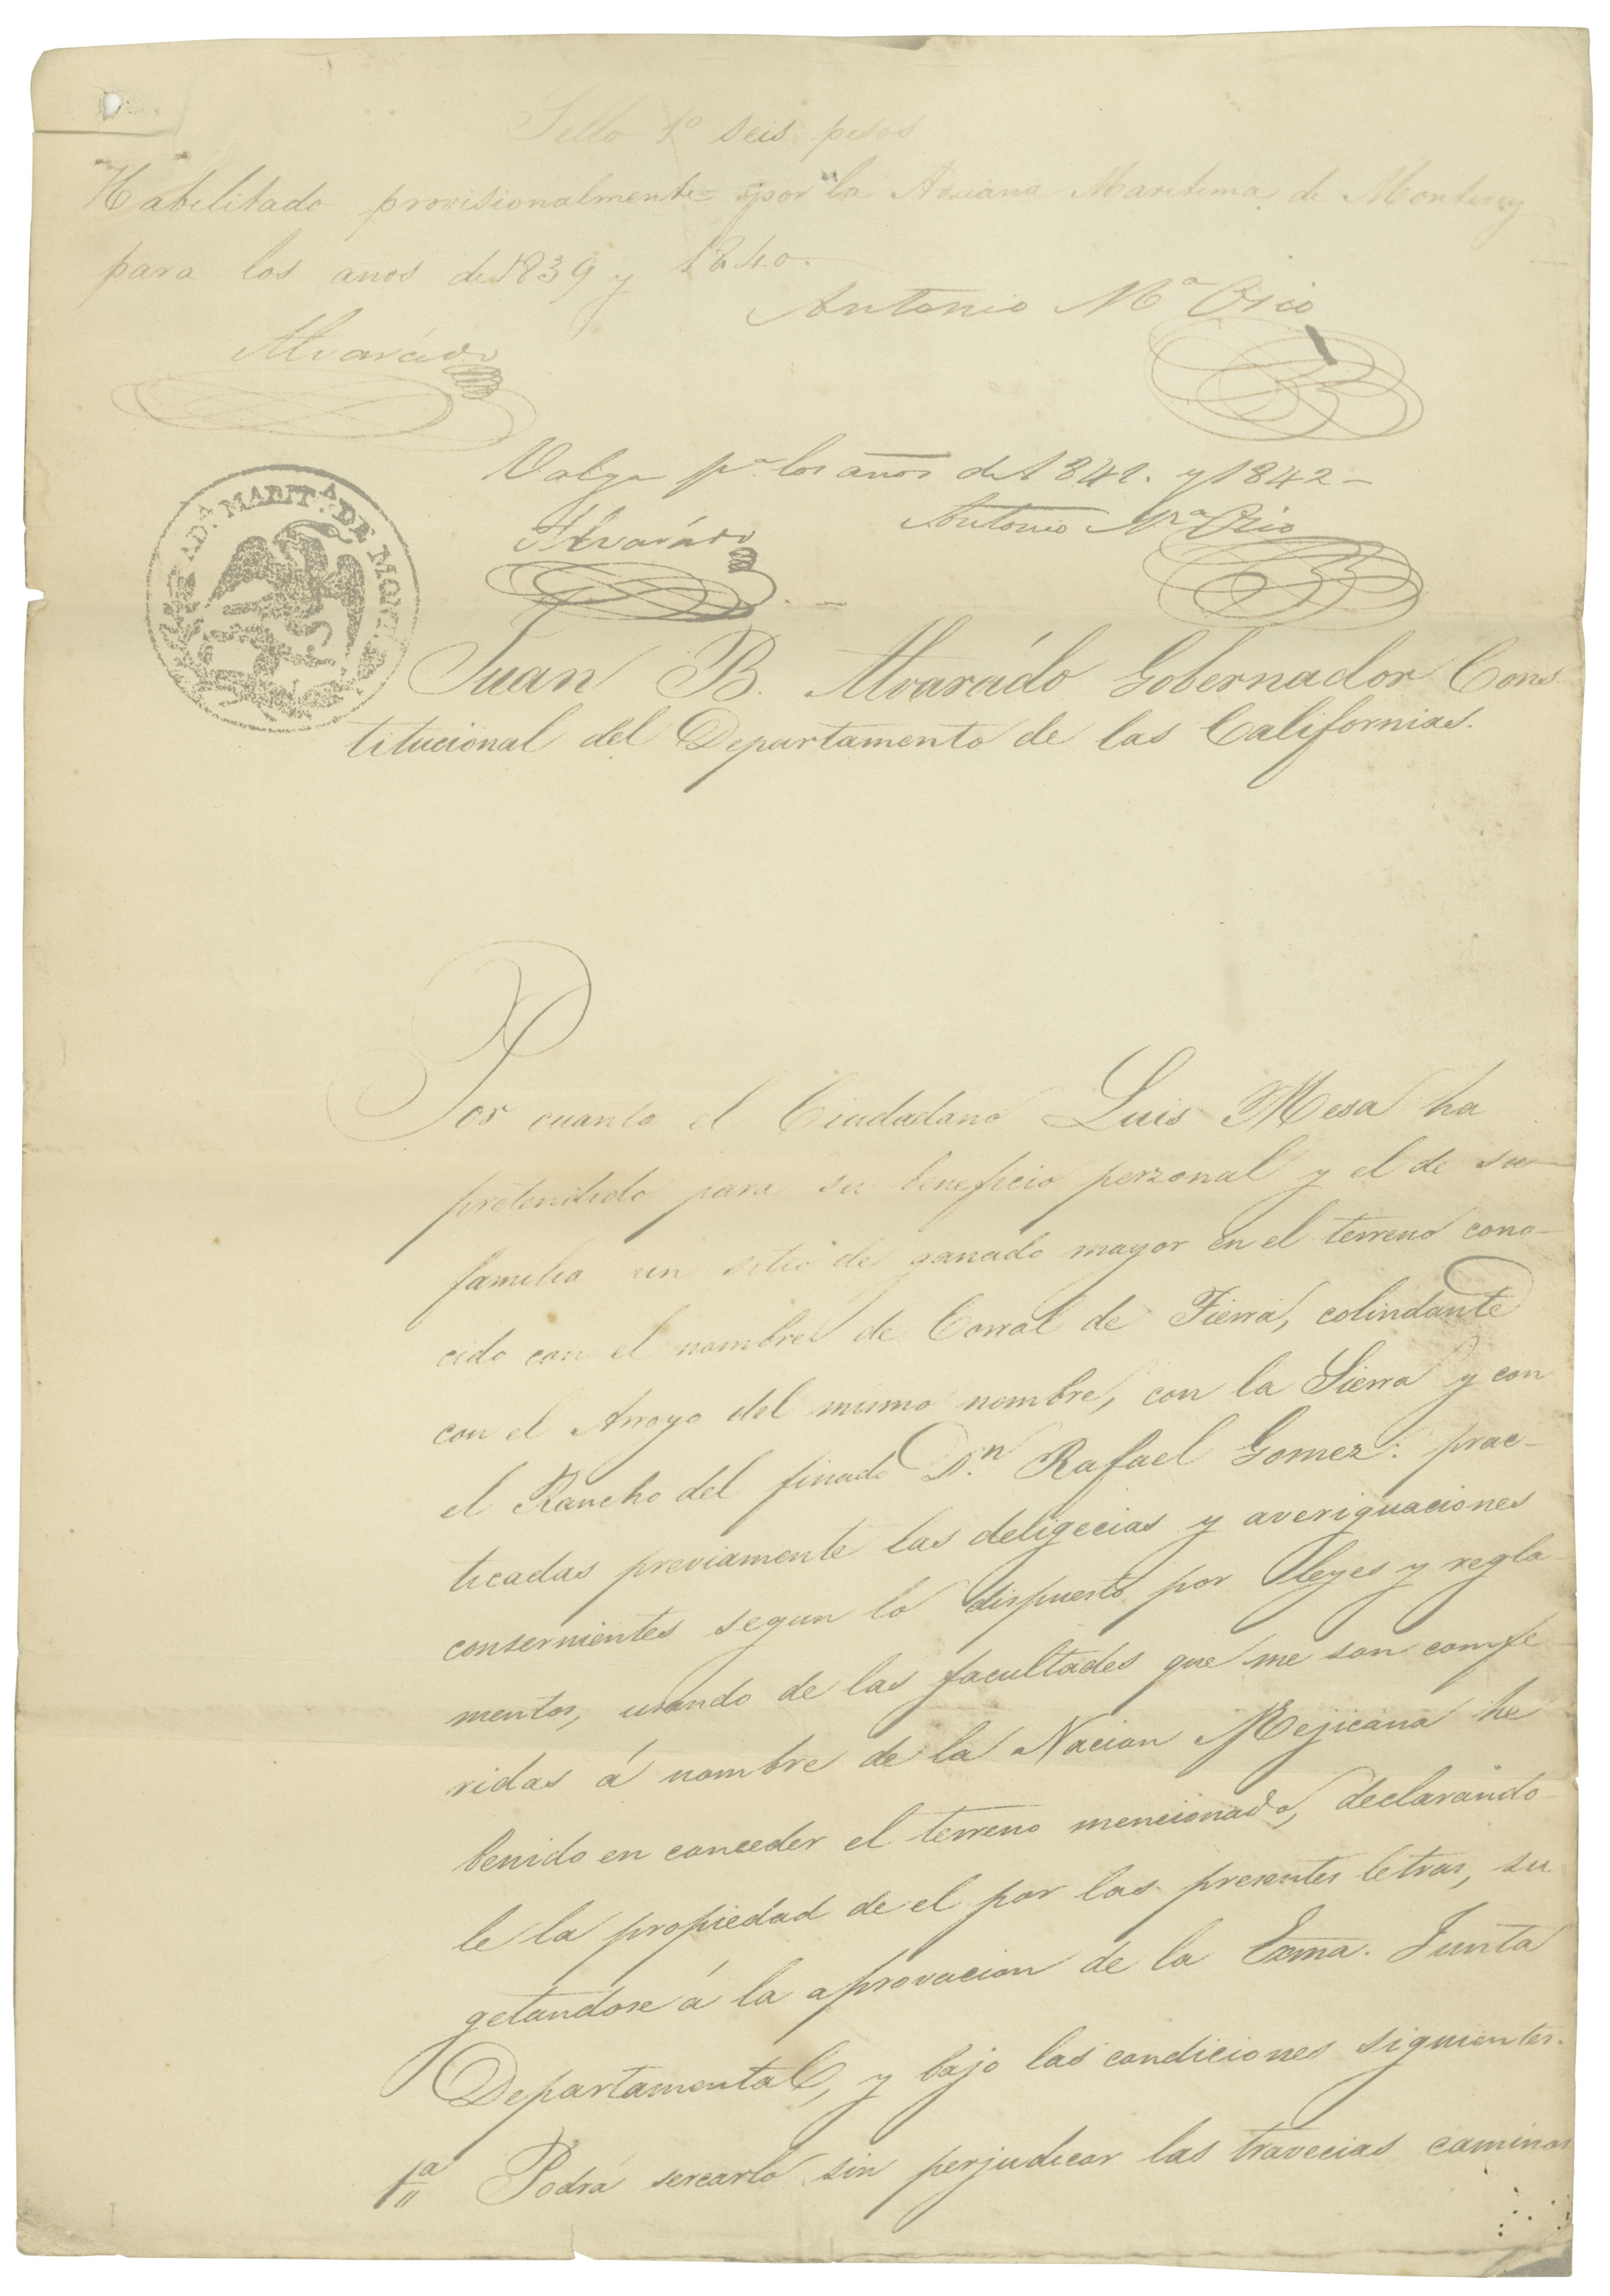 Sello 1º seis pesos
Habilitado provisionalmente por la Aduana Maritima de Monterey
para los años de 1839 y 1840.
Antonio Mª Osio
Alvarádo
Valga pª los años de 1841. y 1842 —
Alvarádo
Antonio Mª Osio
ADª. MARITª. DE MONT
Juan B. Alvarádo Gobernador Cons-
titucional del Departamento de las Californias.
Por cuanto el Ciudadano Luis Mesa ha
pretendido para su beneficio perzonal y el de su
familia un sitio de ganado mayor en el terreno cono-
cido con el nombre de Corral de Tierra, colindante
con el Arroyo del mismo nombre, con la Sierra y con
el Rancho del finado Dn. Rafael Gomez: prac-
ticadas previamente las deligecias y averiguaciones
consernientes segun lo dispuesto por leyes y regla-
mentos, usando de las facultades que me son comfe-
ridas á nombre de la Nacion Mejicana he
benido en conceder el terreno mencionado, declarando-
le la propiedad de el por las presentes letras, su
getandose á la aprovacion de la Exma. Junta
Departamental, y bajo las condiciones siguientes.
1ª Podrá sercarlo sin perjudicar las travecias caminos